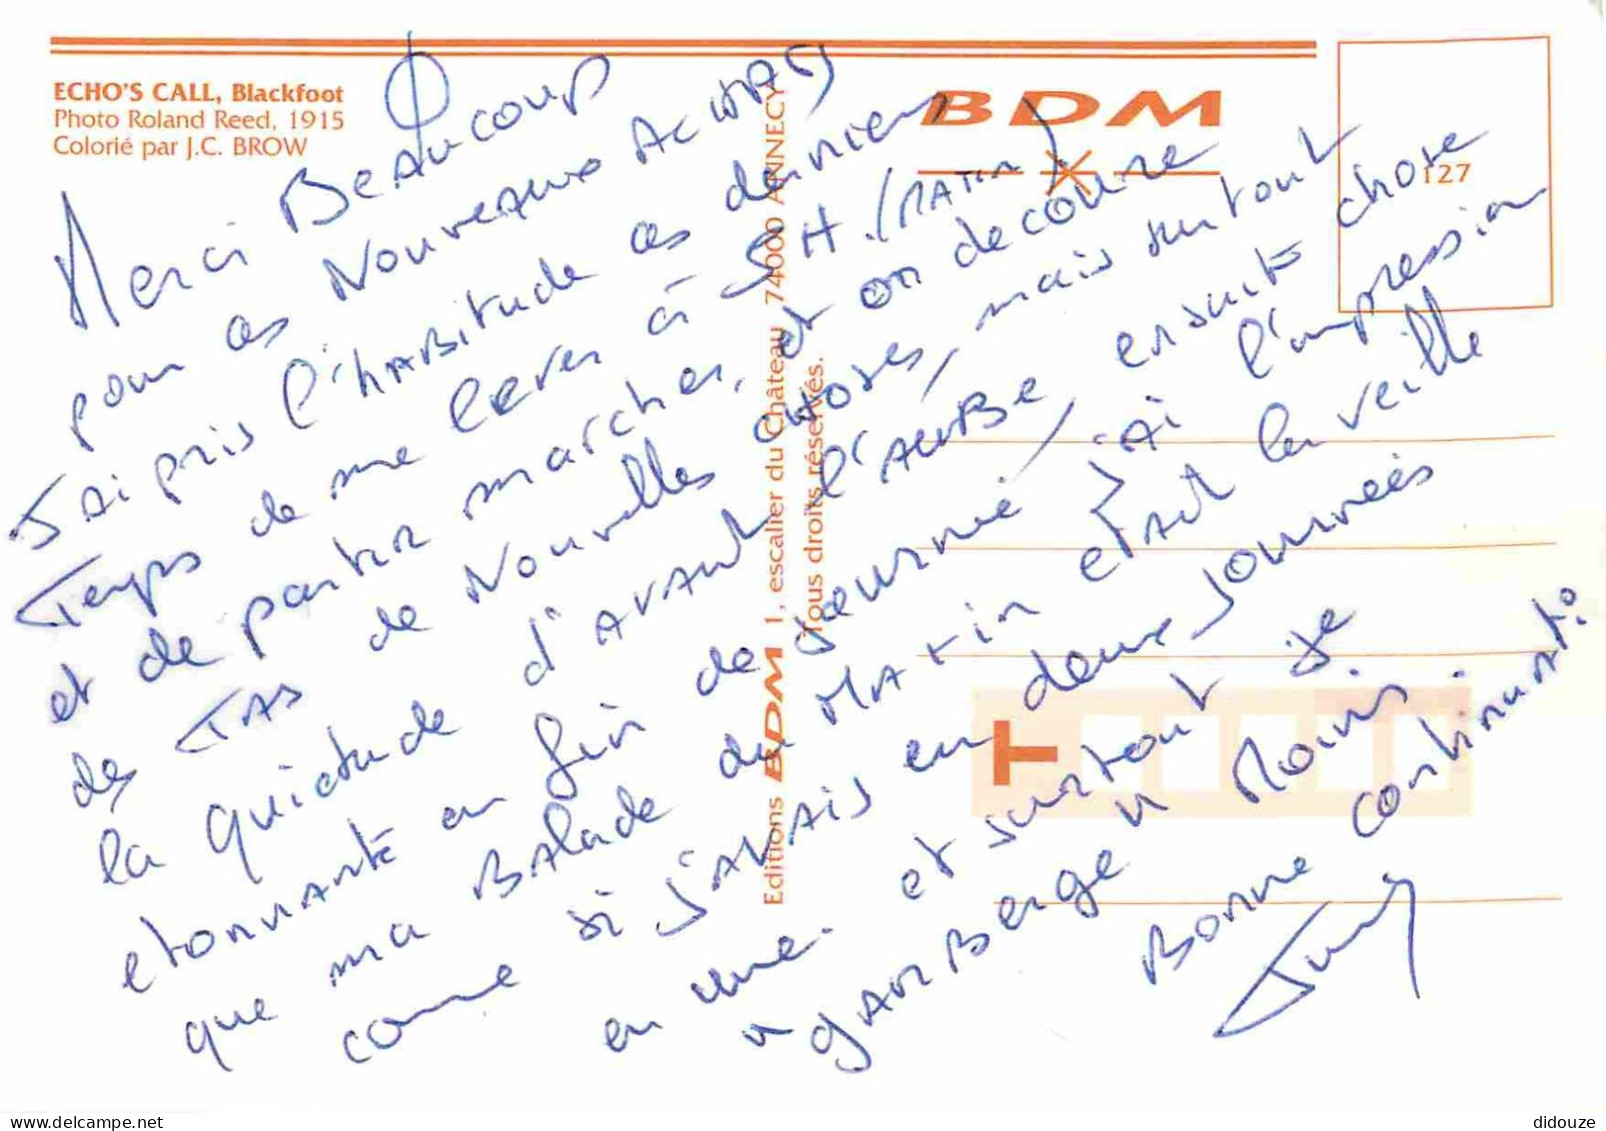 ECHO'S CALL, Blackfoot
Photo Roland Reed, 1915
Colorié par J.C. BROW
BDM
127
Editions BDM 1, escalier du Château 74000 ANNECY
Tous droits réservés.
T
Merci BeAucoup
pour ces Nouveaux AchAts
J'Ai pris l'hABitude ces derniers
Temps de me lever à 5H (MATin)
et de partir marcher, et on découvre
des TAs de Nouvelles choses, mais surtout
la quietude d'avant l'AuBe, ensuite chose
etonnante en fin de journée j'Ai l'impression
que ma BAlade du MAtin etAit la veille
comme si j'avais eu deux journées
en une. et surtout je
" gAmBerge " Moins
Bonne continuat°
didouze